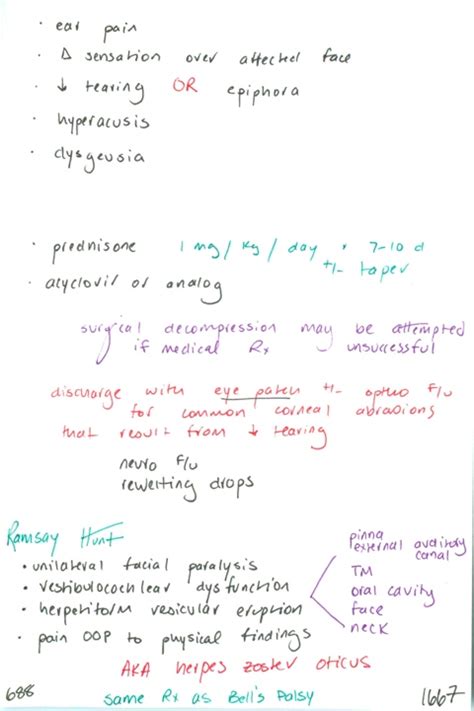 • ear pain
• Δ sensation over affected face
• ↓ tearing OR epiphora
• hyperacusis
• dysgeusia
• prednisone 1 mg/kg/day × 7-10 d
+/- taper
• acyclovir or analog
surgical decompression may be attempted
if medical Rx unsuccessful
discharge with eye patch +/- optho f/u
for common corneal abrasions
that result from ↓ tearing
neuro f/u
rewetting drops
Ramsay Hunt
• unilateral facial paralysis
• vestibulocochlear dysfunction
• herpetiform vesicular eruption
• pain OOP to physical findings
pinna
external auditory
canal
TM
oral cavity
face
neck
AKA herpes zoster oticus
same Rx as Bell's Palsy
688
1667